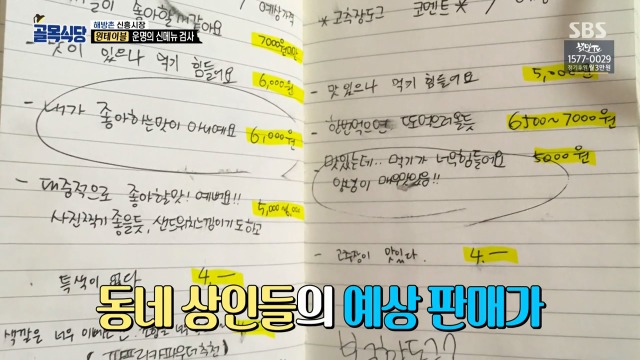 골목식당
해방촌 신흥시장
원테이블 운명의 신메뉴 검사
SBS
1577-0029
정기후원 월 3만 원
이 좋아할 것 같아요
예상가격
7000원
맛이 있으나 먹기 힘들어요
6,000원
- 내가 좋아하는맛이 아니예요
6,000원
- 대중적으로 좋아할맛! 예뻐요!!
5,000
사진찍기 좋을듯, 샌드위치느낌이기도하고
특색이 없다
4.-
색깔은 너무
* 고추장도그 코멘트 *
- 맛있으나 먹기 힘들어요
5,000원
- 한번먹으면 또먹으러올듯
6500~7000원
- 맛있는데.. 먹기가 너무힘들어요
5000원
양념이 매우맛있음!!
- 고추장이 맛있다.
4.-
동네 상인들의 예상 판매가